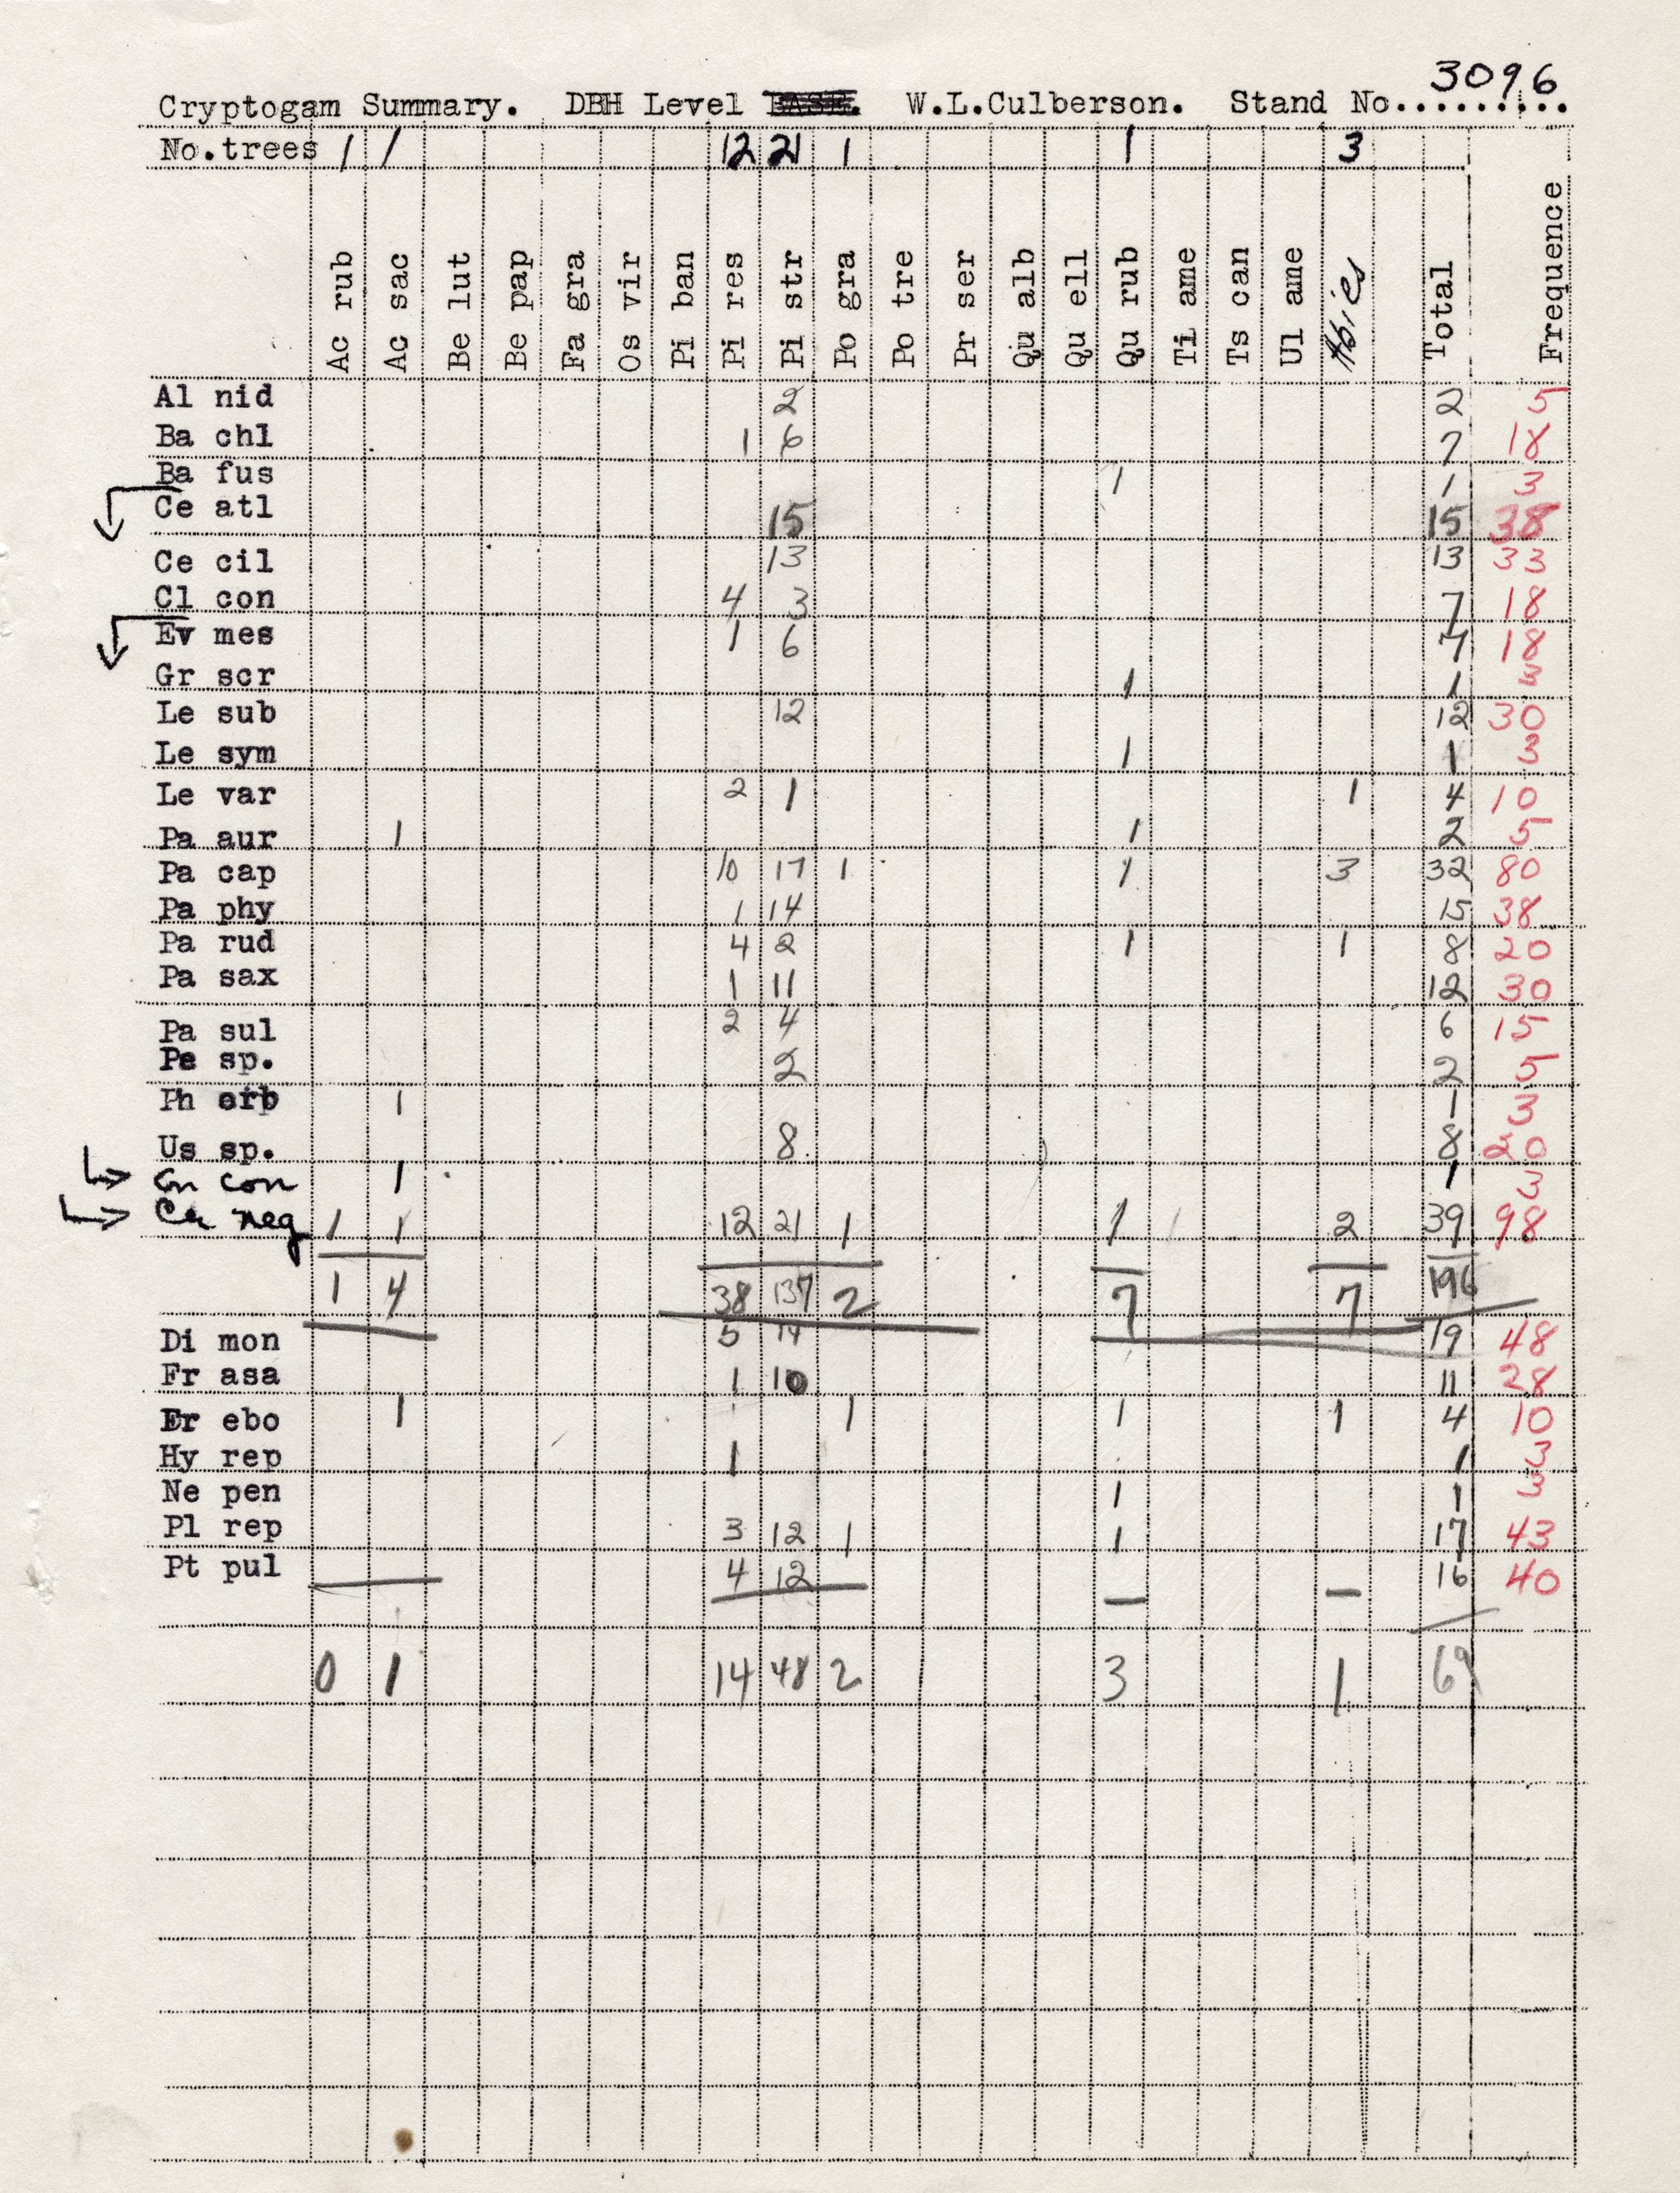 3096
Cryptogam Summary. DBH Level W.L.Culberson. Stand No.........
No.trees 1 1 12 21 1 1 3
Ac rub Ac sac Be lut Be pap Fa gra Os vir Pi ban Pi res Pi str Po gra Po tre Pr ser Qu alb Qu ell Qu rub Ti ame Ts can Ul ame Abies Total Frequence
Al nid 2 2 5
Ba chl 1 6 7 18
Ba fus 1 1 3
Ce atl 15 15 38
Ce cil 13 13 33
Cl con 4 3 7 18
Ev mes 1 6 7 18
Gr scr 1 1 3
Le sub 12 12 30
Le sym 1 1 3
Le var 2 1 1 4 10
Pa aur 1 1 2 5
Pa cap 10 17 1 1 3 32 80
Pa phy 1 14 15 38
Pa rud 4 2 1 1 8 20
Pa sax 1 11 12 30
Pa sul 2 4 6 15
Pe sp. 2 2 5
Ph orb 1 1 3
Us sp. 8 8 20
con 1 1 3
neg 1 1 12 21 1 1 2 39 98
1 4 38 137 2 7 7 196
Di mon 5 14 19 48
Fr asa 1 10 11 28
Fr ebo 1 1 1 1 4 10
Hy rep 1 1 3
Ne pen 1 1 3
Pl rep 3 12 1 1 17 43
Pt pul 4 12 16 40
0 1 14 48 2 3 1 69